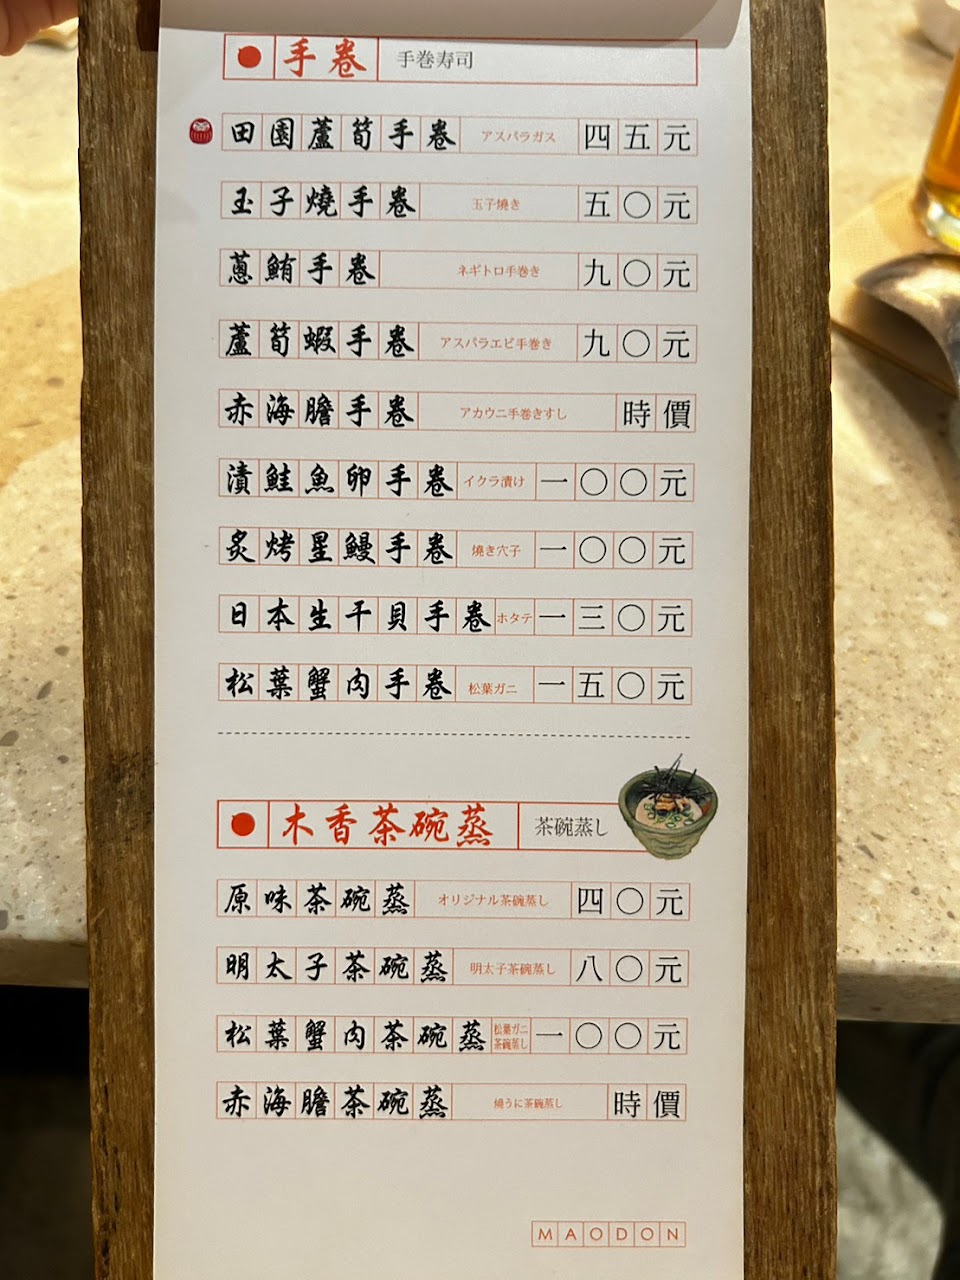 手卷 手巻寿司
田園蘆筍手卷 アスパラガス 四五元
玉子燒手卷 玉子焼き 五〇元
蔥鮪手卷 ネギトロ手巻き 九〇元
蘆筍蝦手卷 アスパラエビ手巻き 九〇元
赤海膽手卷 アカウニ手巻きすし 時價
漬鮭魚卵手卷 イクラ漬け 一〇〇元
炙烤星鰻手卷 焼き穴子 一〇〇元
日本生干貝手卷 ホタテ 一三〇元
松葉蟹肉手卷 松葉ガニ 一五〇元
木香茶碗蒸 茶碗蒸し
原味茶碗蒸 オリジナル茶碗蒸し 四〇元
明太子茶碗蒸 明太子茶碗蒸し 八〇元
松葉蟹肉茶碗蒸 松葉ガニ茶碗蒸し 一〇〇元
赤海膽茶碗蒸 焼うに茶碗蒸し 時價
MAODON